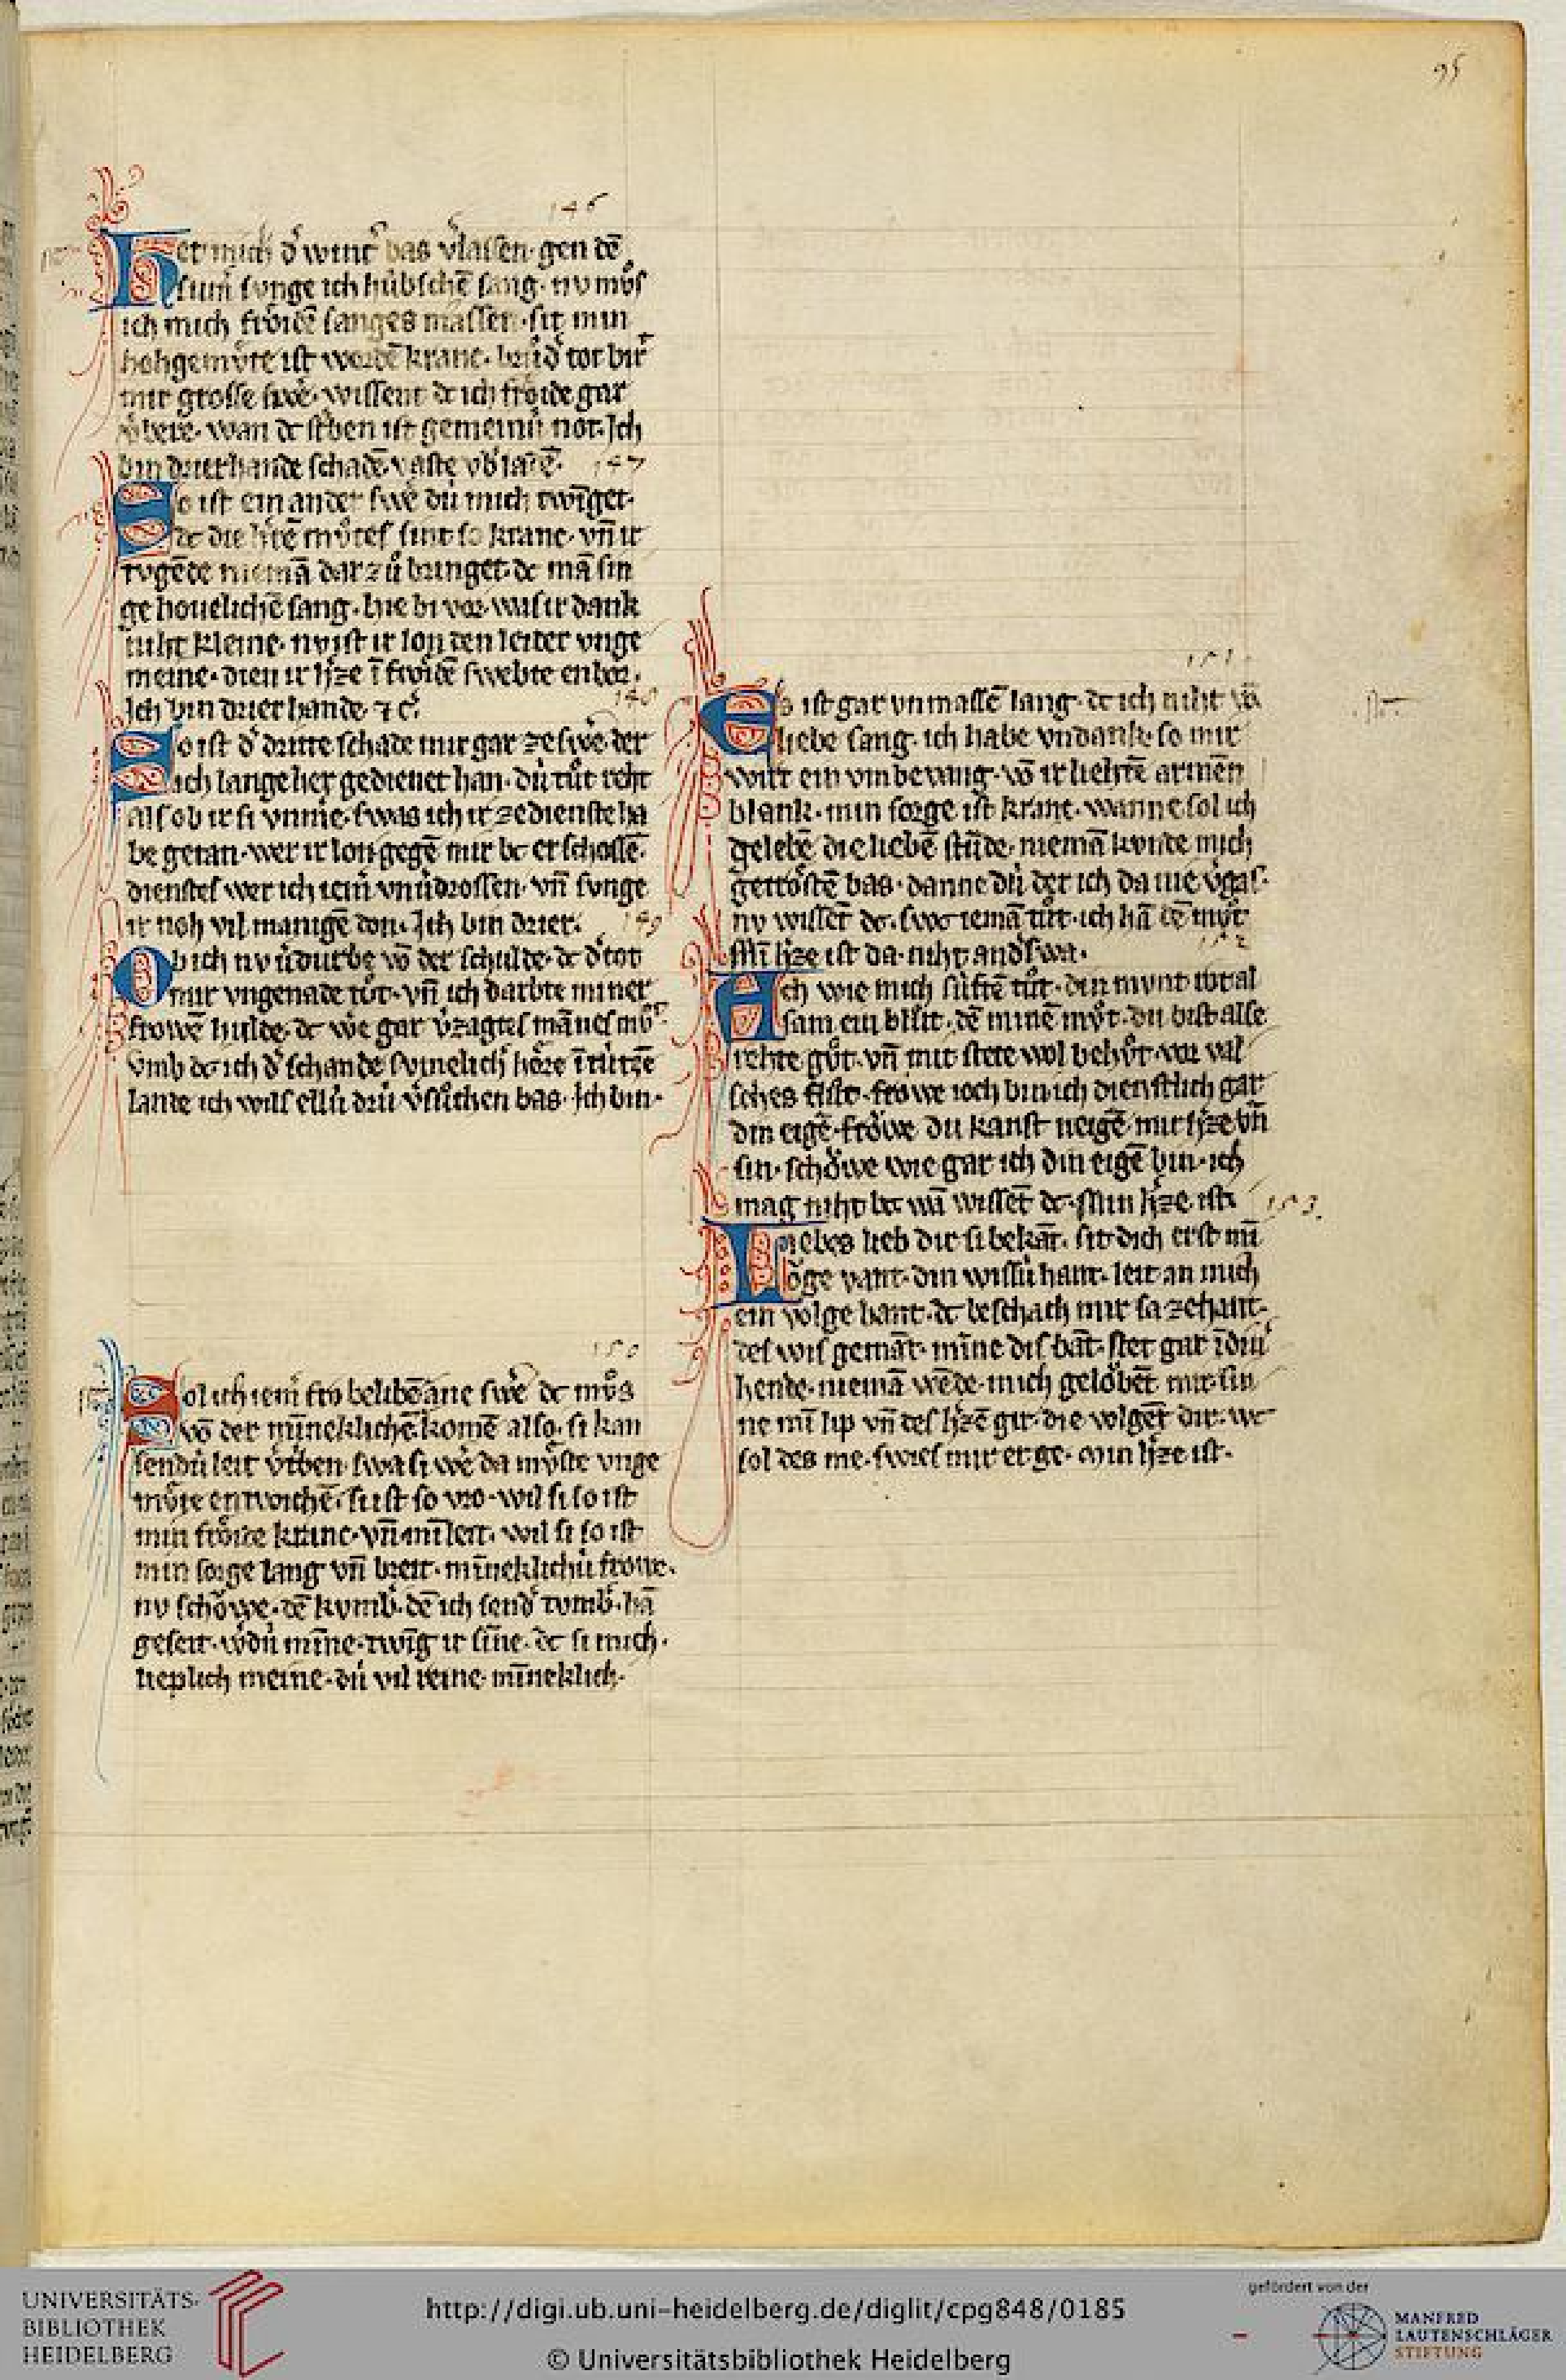 95
146
Het mich d᷎ wint᷎ bas v᷎lassen· gen dē
sum᷎ sunge ich hübschē sang· nv mv̊s
ich mich frǒidē sanges massen· sit min
hohgemv̊te ist wordē kranc· brůd᷎ tot bir᷎t
mir grosse swe᷎· wissent dc ich frǒide gar
v᷎bere· wan dc st᷎ben ist gemeinú not· Ich
bin drierhande schadē vaste vb᷎ladē·
147
So ist ein ander swe᷎ dú mich twīget·
dc die h᷎rē mv̊tes sint so kranc· vn̄ ir
tvgēde niemā dar zů bringet· dc mā sin
ge houelichē sang· hie bi vor· was ir dank
niht kleine· nv ist ir lon den leider vnge
meine· dien ir h᷎ze ī frǒidē swebte enbor·
148
Ich bin drier hande ⁊ c᷎·
So ist d᷎ dritte schade mir gar ze swe᷎· der
ich lange her gedienet han· dú tůt reht
als ob ir si vnme᷎· swas ich ir ze dienste ha
be getan· wer ir lon gegē mir bc erschossē·
dienstes wer ich iem᷎ vnúdrossen· vn̄ sunge
ir noh vil manigē don· Ich bin drier·
149
Ob ich nv v᷎durbe vō der schulde· dc d᷎ tot
mir vngenade tůt· vn̄ ich darbte miner
frowē hulde· dc we᷎ gar v᷎zagtes mānes mv̊t·
vmb dc ich d᷎ schande svmelich᷎ h᷎re ī tútzē
lande ich wils ellú drú v᷎sůchen bas· Ich bin·
150
Sol ich iem᷎ fro belibē āne swe᷎ dc mv̊s
vō der mīneklichē komē also· si kan
sendú leit v᷎t᷎ben· swa si we᷎ da mv̊ste vnge
mv̊te entwichē· si ist so vro· wil si so ist
min frǒide kranc· vn̄ mī leit· wil si so ist
min sorge lang vn̄ breit· mīneklichú frowe·
nv schǒwe· dē kvmb᷎· dē ich send᷎ tvmb᷎· hā
geseit· w᷎dú mīne· twīg ir sīne· dc si mich·
lieplich meine· dú vil reine· mīneklich·
151
Es ist gar vnmassē lang· dc ich niht vō
liebe sang· ich habe vndank· so mir
wirt ein vmbevang· vō ir liehtē armen
blank· min sorge ist kranc· wanne sol ich
gelebē die liebē stūde· niemā konde mich
getrǒstē bas· danne dú der ich da nie v᷎gas·
nv wissēt dc· swc iemā tůt· ich hā dē mv̊t
152
Mī h᷎ze ist da· niht and᷎swa·
Ach wie mich súftē tůt· din munt rotal
sam ein blůt· dē minē mv̊t· du bist alse
rehte gůt· vn̄ mit stete wol behůt· vor val
sches flůt· frowe ioch bin ich dienstlich gar
din eigē· frǒwe du kanst neigē mir h᷎ze vn̄
sin· schǒwe wie gar ich din eigē bin· ich
mag niht bc wā wissēt dc· Min h᷎ze ist·
153
Liebes lieb dir si bekāt· sit dich erst mī
ǒge vant· din wissú hant· leit an mich
ein volge bant· dc beschach mir sa zehant·
des wis gemāt· mīne dis bāt· stet gar ī dinē
hende· niemā wēde· mich gelǒbēt mir sin
ne mī lip vn̄ des h᷎zē gir· die volgēt dir· wc
sol des me· swies mir erge· Min h᷎ze ist·
UNIVERSITÄTS-
BIBLIOTHEK
HEIDELBERG
http://digi.ub.uni-heidelberg.de/diglit/cpg848/0185
© Universitätsbibliothek Heidelberg
gefördert von der
MANFRED
LAUTENSCHLÄGER
STIFTUNG